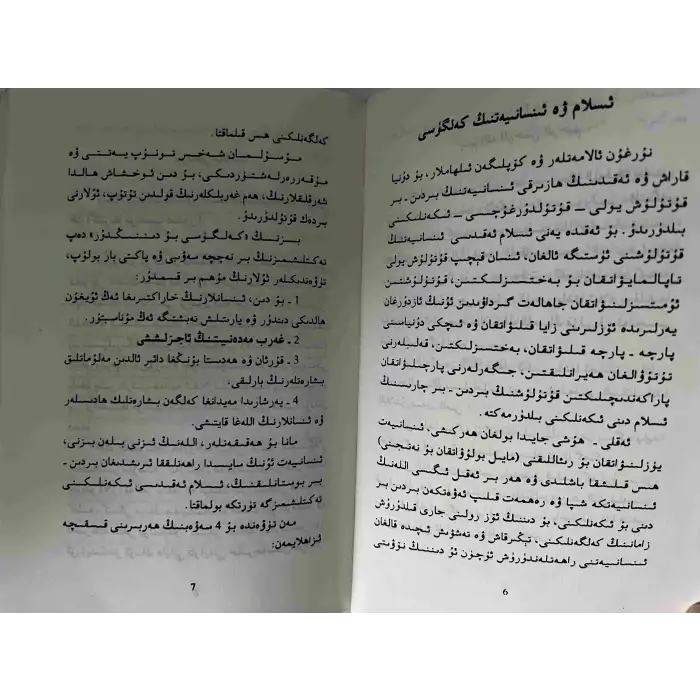 ئىسلام ۋە ئىنسانىيەتنىڭ كەلگۈسى
نۇرغۇن ئالامەتلەر ۋە كۆپلىگەن ئىلھاملار، بۇ دۇنيا
قاراش ۋە ئەقىدىنىڭ ھازىرقى ئىنسانىيەتنىڭ بىردىن - بىر
قۇتۇلۇش يولى – قۇتۇلدۇرغۇچى – ئىكەنلىكىنى
بىلدۈرىدۇ. بۇ ئەقىدە يەنى ئىسلام ئەقىدىسى ئىنسانىيەتنىڭ
قۇتۇلۇشىنى ئۈستىگە ئالغان، ئىنسان قېچىپ قۇتۇلۇش يولى
تاپالمايۋاتقان بۇ بەختسىزلىكتىن، قۇتۇلۇشتىن
ئۈمىتسىزلىنىۋاتقان جاھالەت گىرداۋىدىن ئۇنىڭ ئازدۇرغان
يەرلىرىدە ئۆزلىرىنى زايا قىلىۋاتقان ۋە ئىچكى دۇنياسىنى
پارچە - پارچە قىلىۋاتقان، بەختسىزلىكتىن، قەلبلەرنى
تۇتۇۋالغان ھەيرانلىقتىن، جىگەرلەرنى پارچىلاۋاتقان
پاراكەندىچىلىكتىن قۇتۇلۇشنىڭ بىردىن - بىر چارىسىنىڭ
ئىسلام دىنى ئىكەنلىكىنى بىلدۈرمەكتە.
ئەقلى - ھۇشى جايىدا بولغان ھەركىشى، ئىنسانىيەت
يۈزلىنىۋاتقان بۇ رېئاللىقنى (مايىل بولۇۋاتقان بۇ نەتىجىنى)
ھىس قىلىشقا باشلىدى ۋە ھەر بىر ئەقىل ئىگىسى اللەنىڭ
ئىنسانىيەتكە شىپا ۋە رەھمەت قىلىپ ئەۋەتكەن بىردىن بىر
دىنى بۇ ئىكەنلىكىنى، بۇ دىننىڭ ئۆز رولىنى جارى قىلدۇرۇش
زامانىنىڭ كەلگەنلىكىنى، تېڭىرقاش ۋە تەشۋىش ئىچىدە قالغان
ئىنسانىيەتنى راھەتلەندۈرۈش ئۈچۈن ئۇ دىننىڭ نۆۋىتى
6
كەلگەنلىكىنى ھىس قىلماقتا.
مۇسۇلمان شەخىس تونۇپ يەتتى ۋە
مۇقەررەرلەشتۈردىكى، بۇ دىن ئوخشاش ھالدا
شەرقلىقلارنىڭ، ھەم غەربلىكلەرنىڭ قولىدىن تۇتۇپ، ئۇلارنى
بىردەك قۇتۇلدۇرىدۇ.
بىزنىڭ «كەلگۈسى بۇ دىننىڭكىدۇر» دەپ
تەكىتلىشىمىزنىڭ بىر نەچچە سەۋىبى ۋە پاكىتى بار بولۇپ،
تۆۋەندىكىلەر ئۇلارنىڭ مۇھىم بىر قىسمىدۇر:
1 ـ بۇ دىن، ئىنسانلارنىڭ خاراكتىرىغا ئەڭ ئۇيغۇن
ھالدىكى دىندۇر ۋە يارىتىلىش تەبىئىتىگە ئەڭ مۇناسىپتۇر.
2 ـ غەرب مەدەنىيىتىنىڭ ئاجىزلىشىشى
3 ـ قۇرئان ۋە ھەدىستا بۇنىڭغا دائىر ئالدىن مەلۇماتلىق
بىشارەتلەرنىڭ بارلىقى.
4 ـ يەرشارىدا مەيدانغا كەلگەن بىشارەتلىك ھادىسىلەر
ۋە ئىنسانلارنىڭ اللەغا قايتىشى.
مانا بۇ ھەقىقەتلەر، اللەنىڭ ئىزنى بىلەن بىزنى،
ئىنسانىيەت ئۇنىڭ سايىسىدا راھەتلىككە ئېرىشىدىغان بىردىن -
بىر بوستانلىقنىڭ، ئىسلام ئەقىدىسى ئىكەنلىكىنى
تەكىتلىشىمىزگە تۈرتكە بولماقتا.
مەن تۆۋەندە بۇ 4 سەۋەبنىڭ ھەربىرىنى قىسقىچە
ئىزاھلايمەن:
7